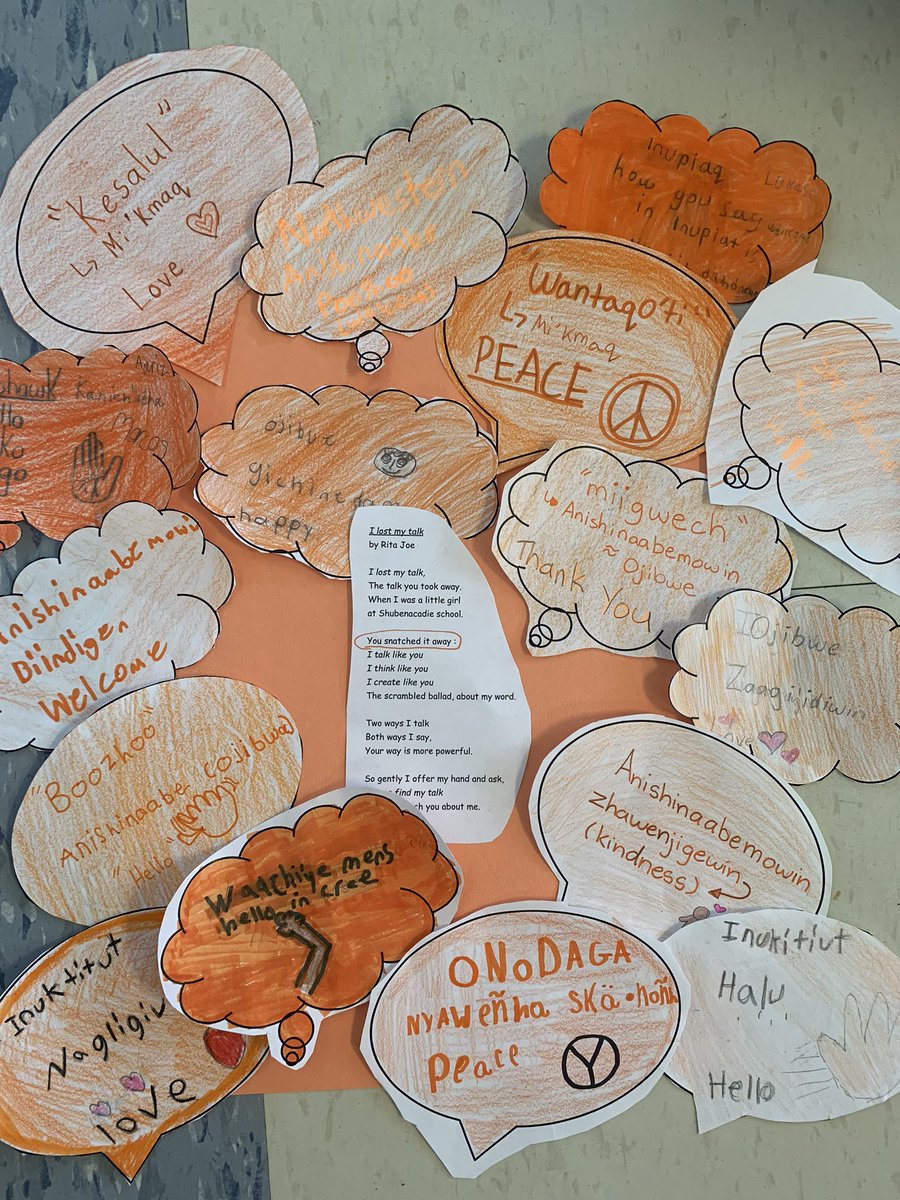 "Kesalul"
↳ Mi'kmaq
Love
Northwestern
Anishinaabe
Inupiaq
how you say
in Inupiat is
"Wantaqo'ti"
↳ Mi'kmaq
PEACE
Kanien'keha
ojibwe
happy
"miigwech"
↳ Anishinaabemowin
~ Ojibwe
Thank You
I lost my talk
by Rita Joe
I lost my talk,
The talk you took away.
When I was a little girl
at Shubenacadie school.
You snatched it away :
I talk like you
I think like you
I create like you
The scrambled ballad, about my word.
Two ways I talk
Both ways I say,
Your way is more powerful.
So gently I offer my hand and ask,
find my talk
you about me.
Anishinaabemowin
Biindigen
Welcome
IOjibwe
Zaagi'idiwin
"Boozhoo"
Anishinaabe (ojibwa)
"Hello"
Anishinaabemowin
zhawenjigewin
(kindness)
Waachiye mens
hello in cree
Inuktitut
Nagligiv
love
ONODAGA
NYAWEÑHA SKÄ•NOÑH
Peace
Inukitiut
Halu
Hello